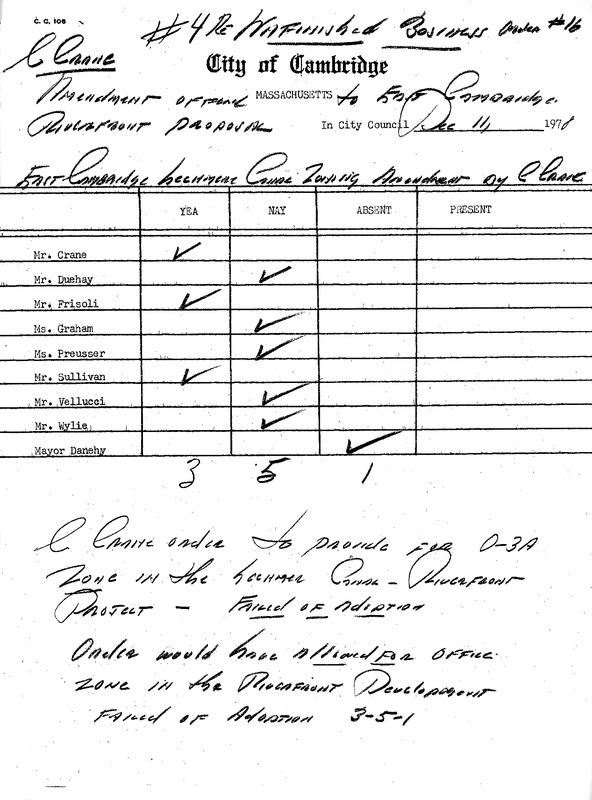 C. C. 106
#4 Re Unfinished Business Order #16
C Crane
City of Cambridge
MASSACHUSETTS
Amendment offered to East Cambridge
Riverfront Proposal In City Council Dec 11, 1978
East Cambridge Lechmere Canal Zoning Amendment by C Crane
YEA NAY ABSENT PRESENT
Mr. Crane ✓
Mr. Duehay ✓
Mr. Frisoli ✓
Ms. Graham ✓
Ms. Preusser ✓
Mr. Sullivan ✓
Mr. Vellucci ✓
Mr. Wylie ✓
Mayor Danehy ✓
3 5 1
C Crane order to provide for O-3A
Zone in the Lechmer Canal - Riverfront
Project - Failed of Adoption
Order would have allowed for office
zone in the Riverfront Development
Failed of Adoption 3-5-1